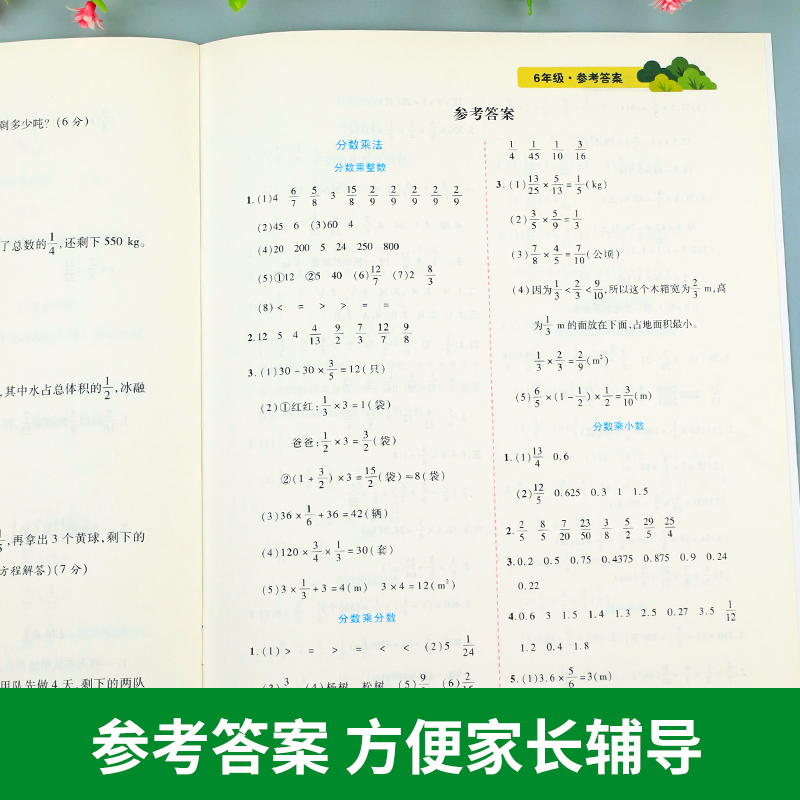 剩多少吨? (6 分)
了总数的1/4,还剩下 550 kg。
其中水占总体积的1/2,冰融
,再拿出 3 个黄球,剩下的
方程解答)(7 分)
队先做 4 天,剩下的两队
6年级·参考答案
参考答案
分数乘法
分数乘整数
1. (1)4 6/7 5/8 3 15/8 2/9 2/9 2/9 2/9 2/9
(2)45 6 (3)60 4
(4)20 200 5 24 250 800
(5)①12 ②5 40 (6)12/7 (7)2 8/3
(8)< = > > = =
2. 12 5 4 4/13 9/2 7/3 12/7 9/8
3. (1)30-30×3/5=12(只)
(2)①红红:1/3×3=1(袋)
爸爸:1/2×3=3/2(袋)
②(1+3/2)×3=15/2(袋)≈8(袋)
(3)36×1/6+36=42(辆)
(4)120×3/4×1/3=30(套)
(5)3×1/3+3=4(m) 3×4=12(m²)
分数乘分数
1. (1)> = > = < < (2)5 1/24
(3)3 (4)杨树 松树 (5)9 (6)2
1/4 1/45 1/10 3/16
3. (1)13/25×5/13=1/5(kg)
(2)3/5×5/9=1/3
(3)7/8×4/5=7/10(公顷)
(4)因为1/3<2/3<9/10,所以这个木箱宽为2/3 m,高
为1/3 m 的面放在下面,占地面积最小。
1/3×2/3=2/9(m²)
(5)6/5×(1-1/2)×1/2=3/10(m)
分数乘小数
1. (1)13/4 0.6
(2)12/5 0.625 0.3 1 1.5
2. 2/5 8/5 7/20 23/50 3/8 5/2 29/5 25/4
3. 0.2 0.5 0.75 0.4375 0.875 0.9 0.24
0.22
4. 0.6 3 1.5 1.4 1.3 2.5 0.27 3.5 1/12
1.2 0.4 1.8
5. (1)3.6×5/6=3(m)
参考答案 方便家长辅导